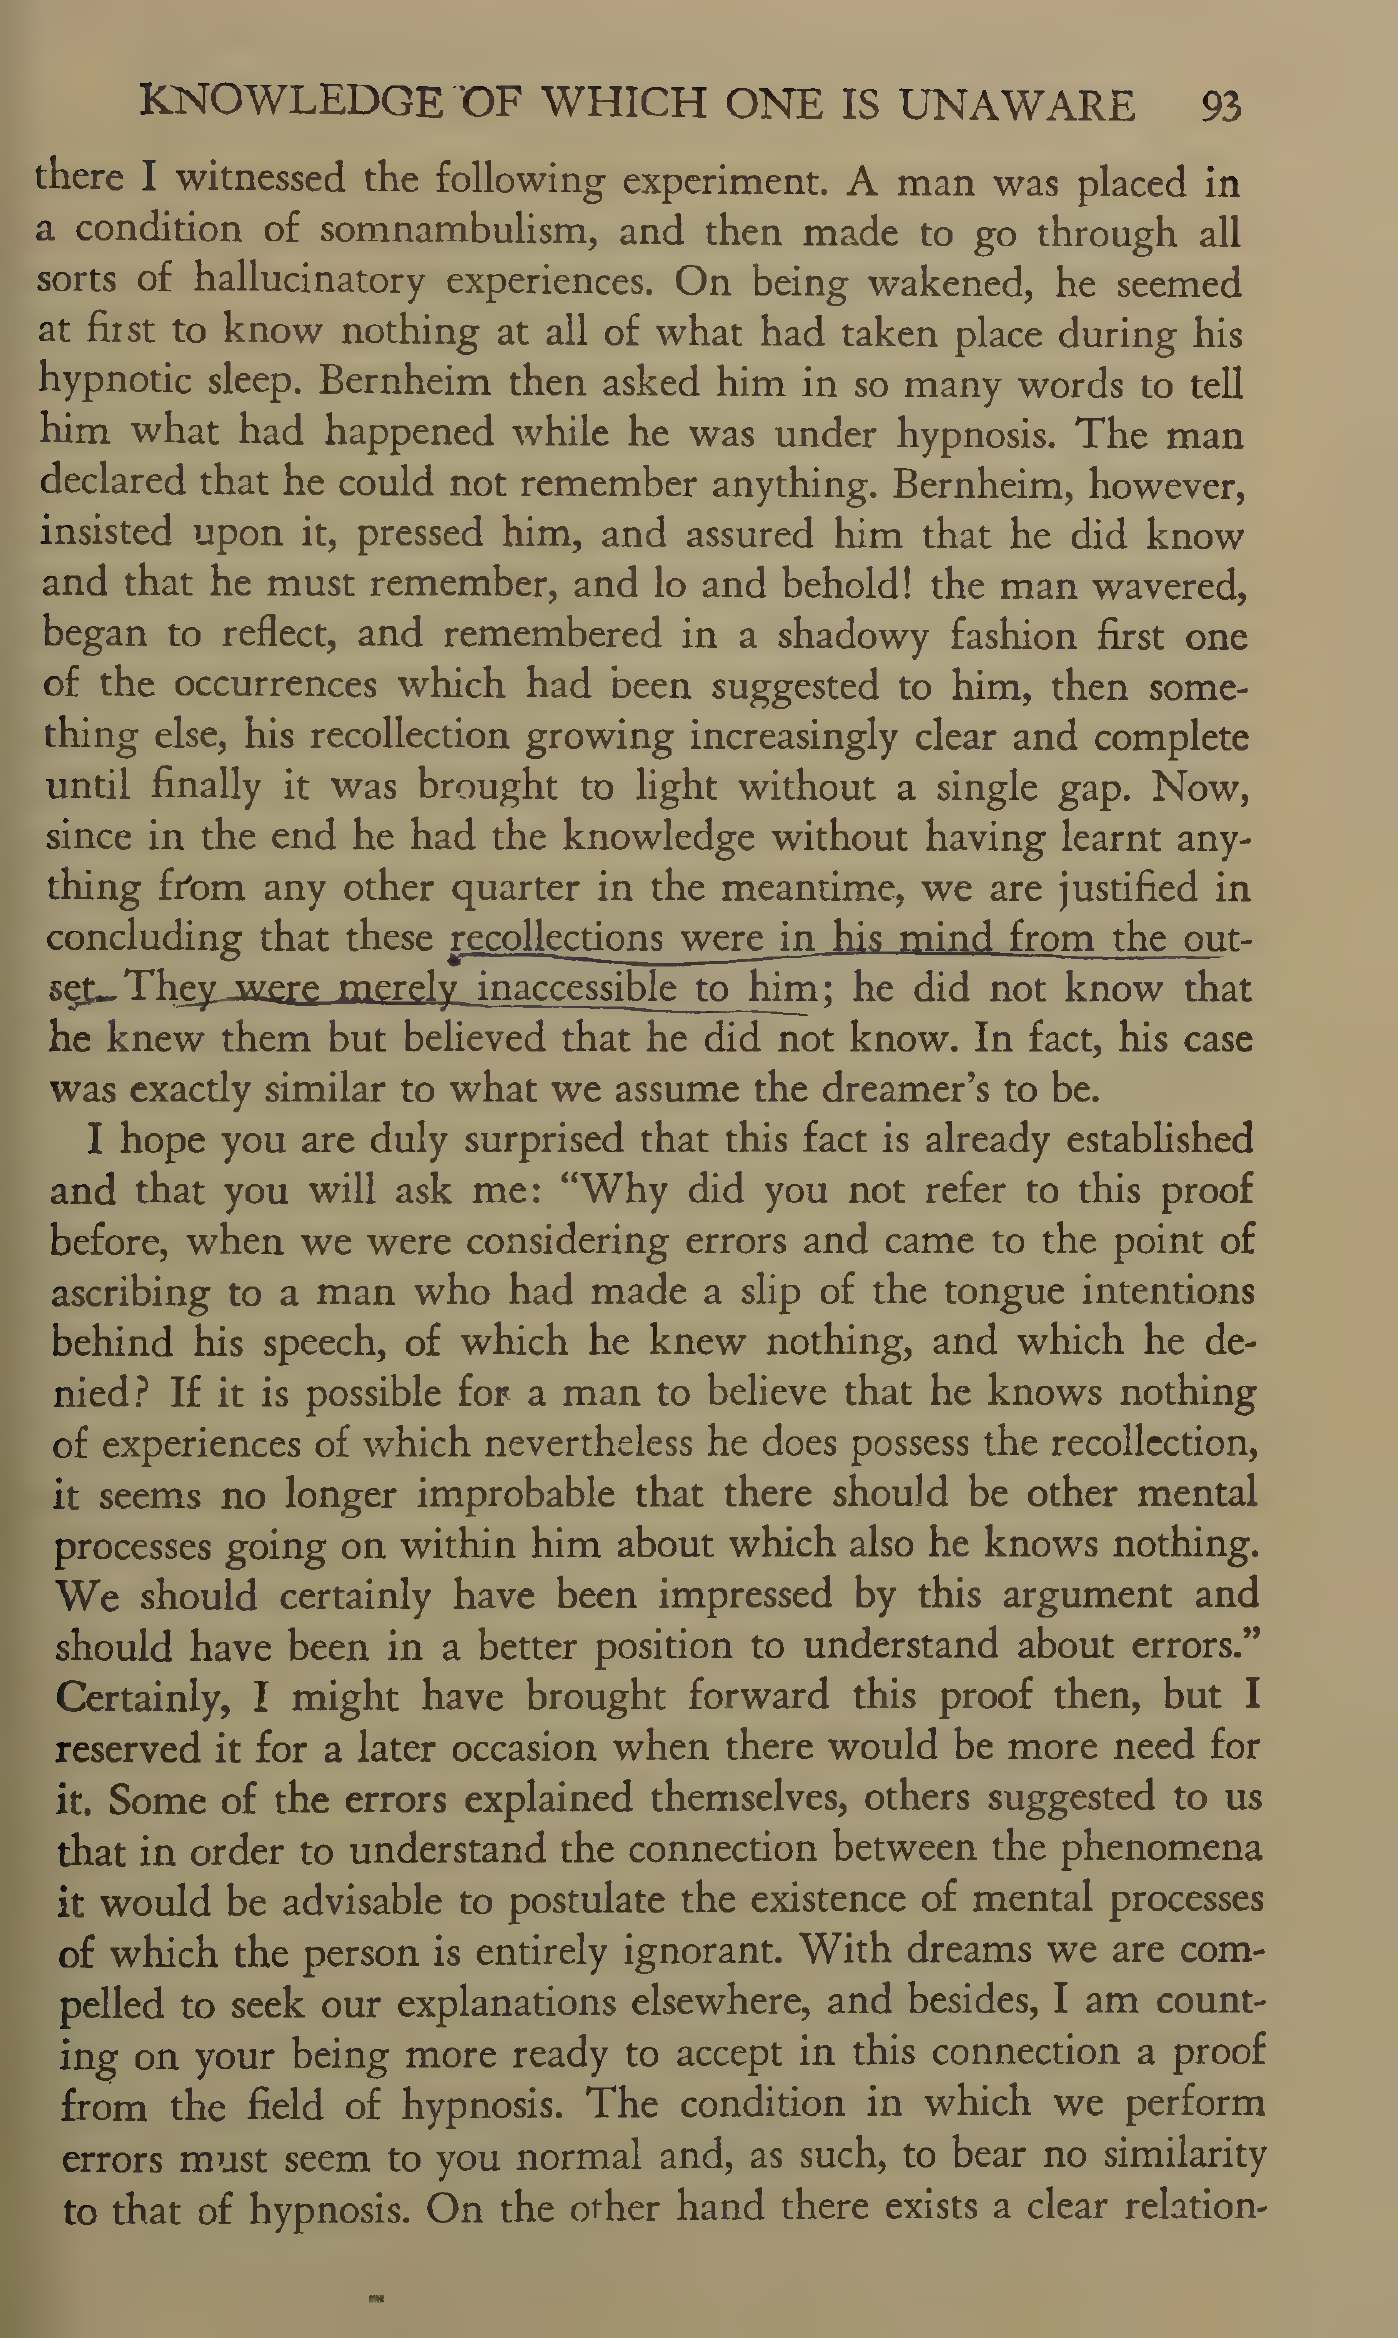 KNOWLEDGE OF WHICH ONE IS UNAWARE 93
there I witnessed the following experiment. A man was placed in
a condition of somnambulism, and then made to go through all
sorts of hallucinatory experiences. On being wakened, he seemed
at first to know nothing at all of what had taken place during his
hypnotic sleep. Bernheim then asked him in so many words to tell
him what had happened while he was under hypnosis. The man
declared that he could not remember anything. Bernheim, however,
insisted upon it, pressed him, and assured him that he did know
and that he must remember, and lo and behold! the man wavered,
began to reflect, and remembered in a shadowy fashion first one
of the occurrences which had been suggested to him, then some-
thing else, his recollection growing increasingly clear and complete
until finally it was brought to light without a single gap. Now,
since in the end he had the knowledge without having learnt any-
thing from any other quarter in the meantime, we are justified in
concluding that these recollections were in his mind from the out-
set. They were merely inaccessible to him; he did not know that
he knew them but believed that he did not know. In fact, his case
was exactly similar to what we assume the dreamer's to be.
I hope you are duly surprised that this fact is already established
and that you will ask me: “Why did you not refer to this proof
before, when we were considering errors and came to the point of
ascribing to a man who had made a slip of the tongue intentions
behind his speech, of which he knew nothing, and which he de-
nied? If it is possible for a man to believe that he knows nothing
of experiences of which nevertheless he does possess the recollection,
it seems no longer improbable that there should be other mental
processes going on within him about which also he knows nothing.
We should certainly have been impressed by this argument and
should have been in a better position to understand about errors.”
Certainly, I might have brought forward this proof then, but I
reserved it for a later occasion when there would be more need for
it. Some of the errors explained themselves, others suggested to us
that in order to understand the connection between the phenomena
it would be advisable to postulate the existence of mental processes
of which the person is entirely ignorant. With dreams we are com-
pelled to seek our explanations elsewhere, and besides, I am count-
ing on your being more ready to accept in this connection a proof
from the field of hypnosis. The condition in which we perform
errors must seem to you normal and, as such, to bear no similarity
to that of hypnosis. On the other hand there exists a clear relation-